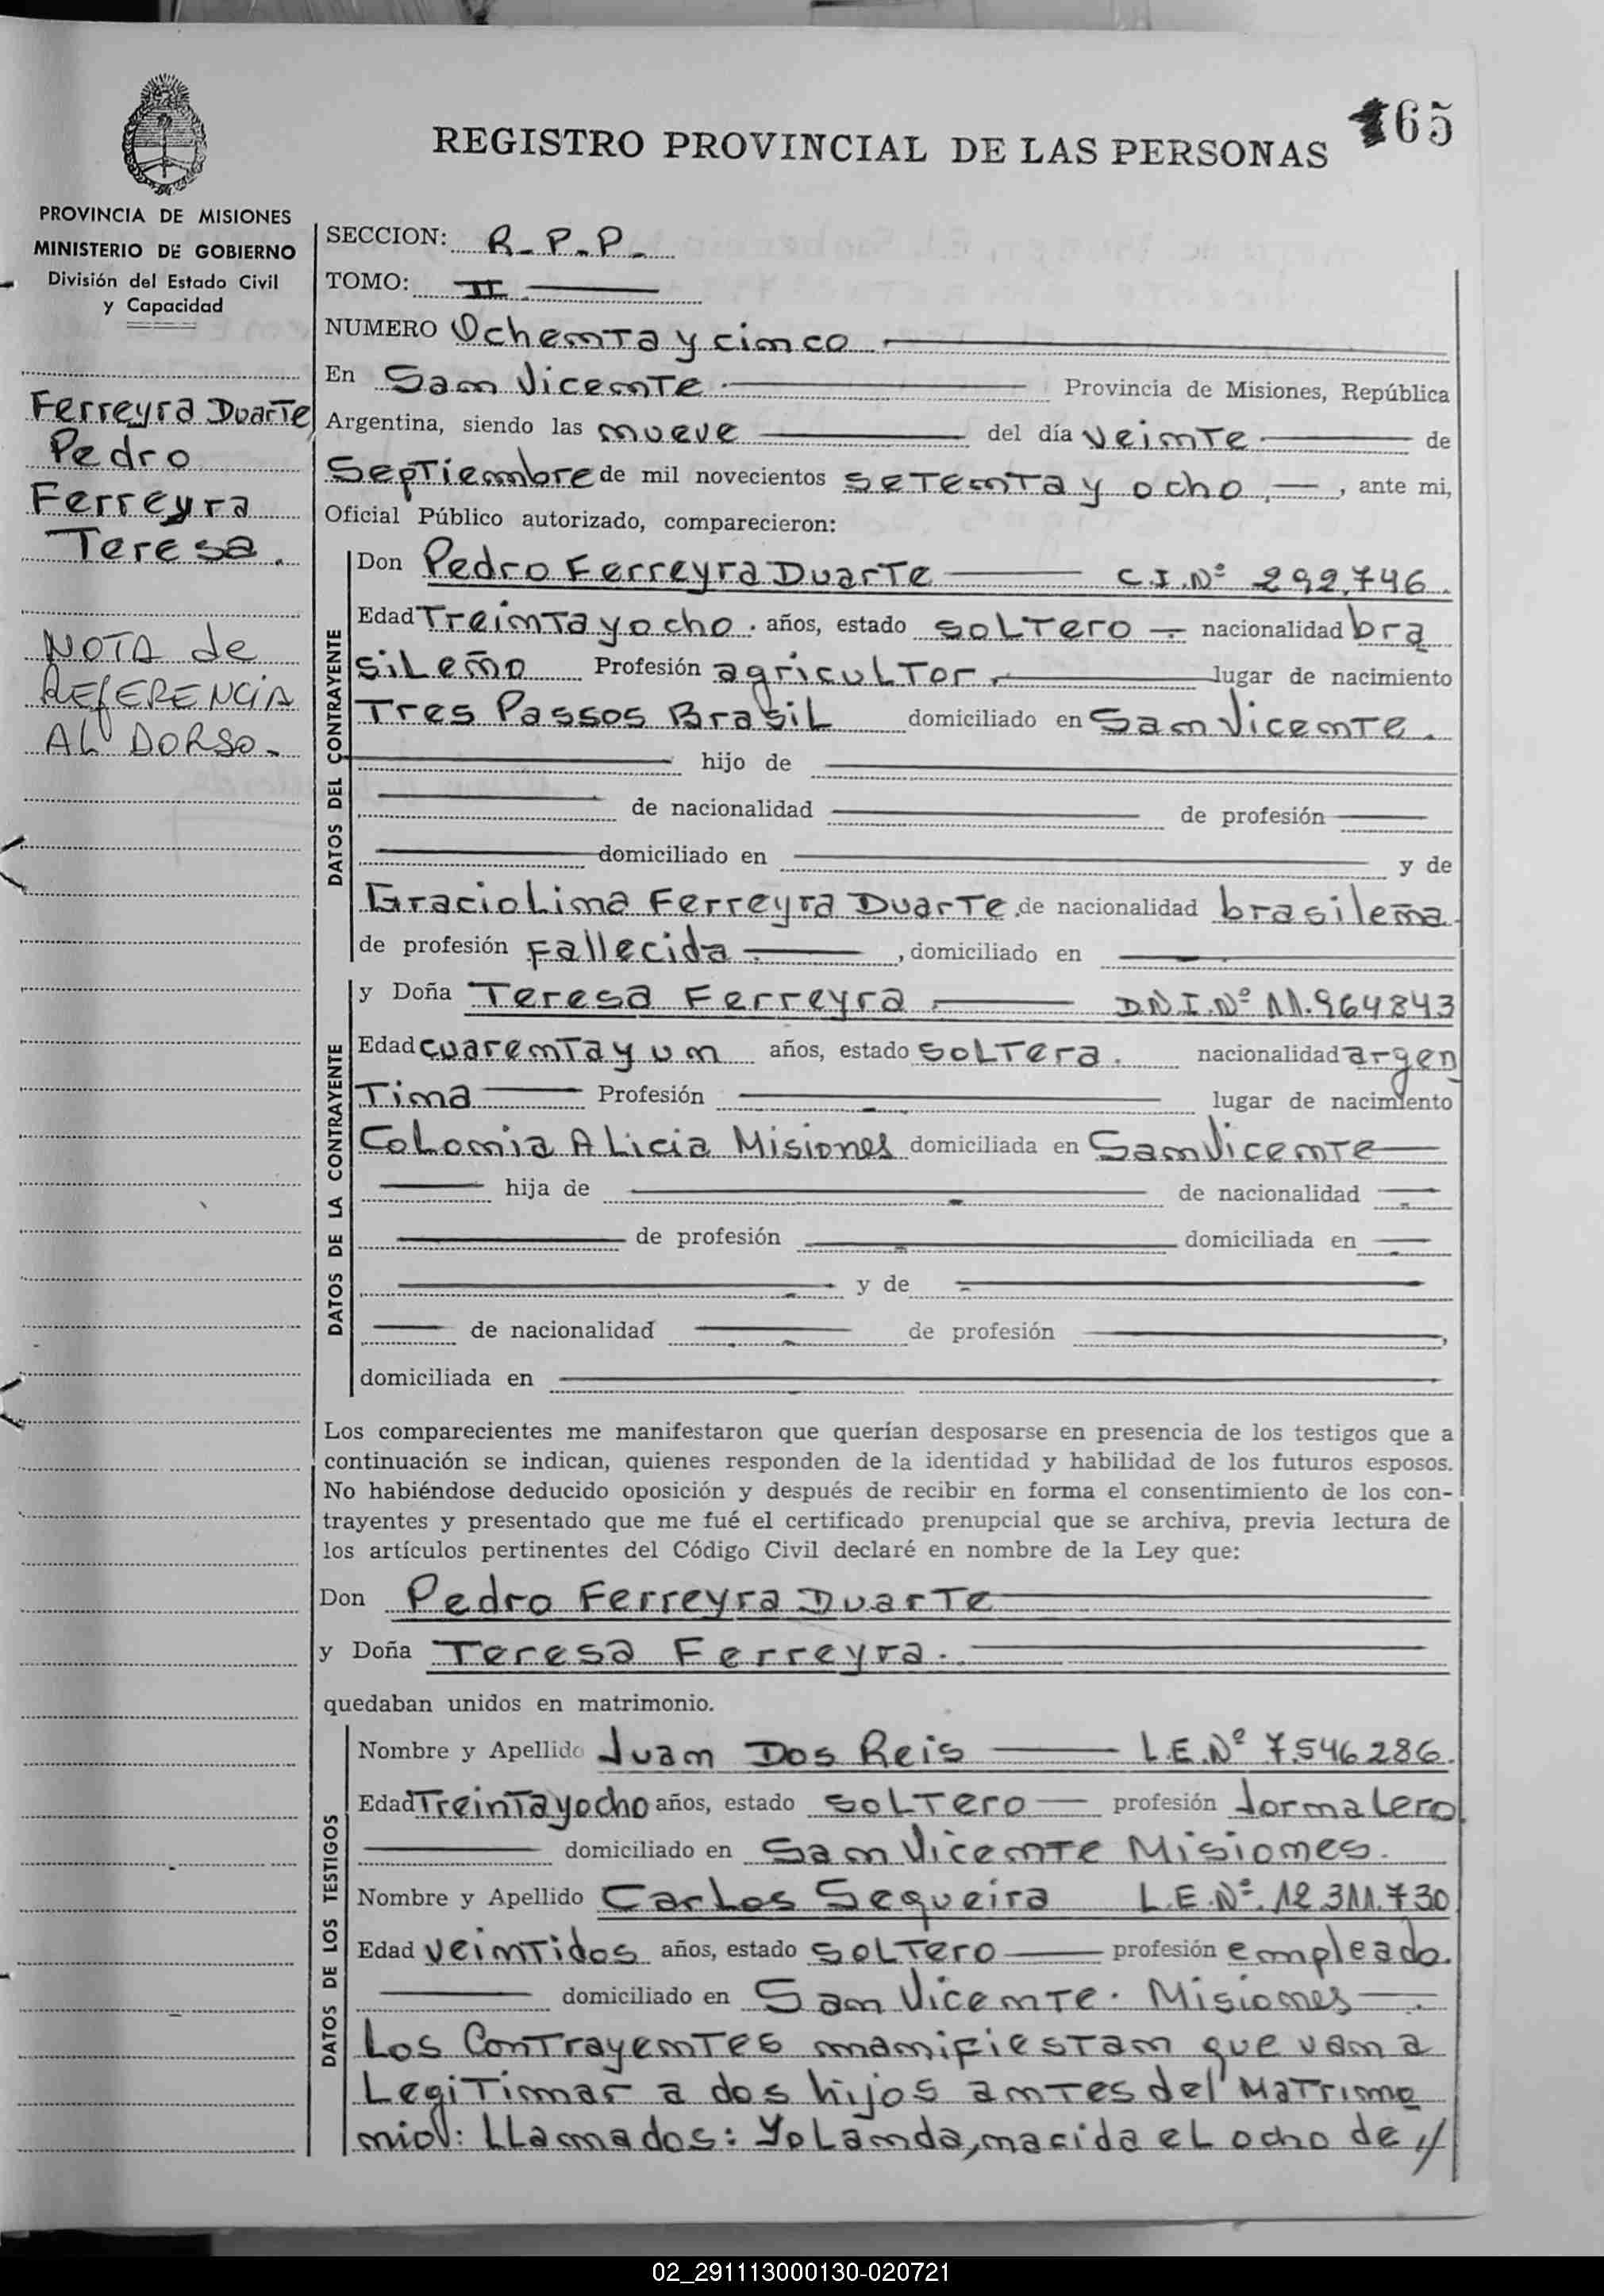 165
REGISTRO PROVINCIAL DE LAS PERSONAS
PROVINCIA DE MISIONES
MINISTERIO DE GOBIERNO
División del Estado Civil
y Capacidad
Ferreyra Duarte
Pedro
Ferreyra
Teresa.
NOTA de
REFERENCIA
AL DORSO.-
SECCION: R.P.P.
TOMO: II
NUMERO Ochenta y cinco
En San Vicente. Provincia de Misiones, República
Argentina, siendo las nueve del día veinte de
Septiembre de mil novecientos setenta y ocho, ante mi,
Oficial Público autorizado, comparecieron:
DATOS DEL CONTRAYENTE
Don Pedro Ferreyra Duarte C.I.Nº 292.746.
Edad Treinta y ocho. años, estado soltero nacionalidad bra
sileño Profesión agricultor. lugar de nacimiento
Tres Passos Brasil domiciliado en San Vicente.
hijo de
de nacionalidad de profesión
domiciliado en y de
Graciolina Ferreyra Duarte, de nacionalidad brasileña.
de profesión Fallecida. , domiciliado en
DATOS DE LA CONTRAYENTE
y Doña Teresa Ferreyra D.N.I.Nº 11.964843
Edad cuarenta y un años, estado soltera. nacionalidad argen
tina Profesión lugar de nacimiento
Colonia Alicia Misiones domiciliada en San Vicente
hija de de nacionalidad
de profesión domiciliada en
y de
de nacionalidad de profesión ,
domiciliada en
Los comparecientes me manifestaron que querían desposarse en presencia de los testigos que a
continuación se indican, quienes responden de la identidad y habilidad de los futuros esposos.
No habiéndose deducido oposición y después de recibir en forma el consentimiento de los con-
trayentes y presentado que me fué el certificado prenupcial que se archiva, previa lectura de
los artículos pertinentes del Código Civil declaré en nombre de la Ley que:
Don Pedro Ferreyra Duarte
y Doña Teresa Ferreyra.
quedaban unidos en matrimonio.
DATOS DE LOS TESTIGOS
Nombre y Apellido Juan Dos Reis L.E.Nº 7.546286.
Edad Treinta y ocho años, estado soltero profesión Jornalero
domiciliado en San Vicente Misiones.
Nombre y Apellido Carlos Sequeira L.E.Nº. 12.311.730
Edad veintidos años, estado soltero profesión empleado.
domiciliado en San Vicente. Misiones.
Los Contrayentes manifiestan que van a
Legitimar a dos hijos antes del Matrimo
nio: Llamados: Yolanda, nacida el ocho de //
02_291113000130-020721